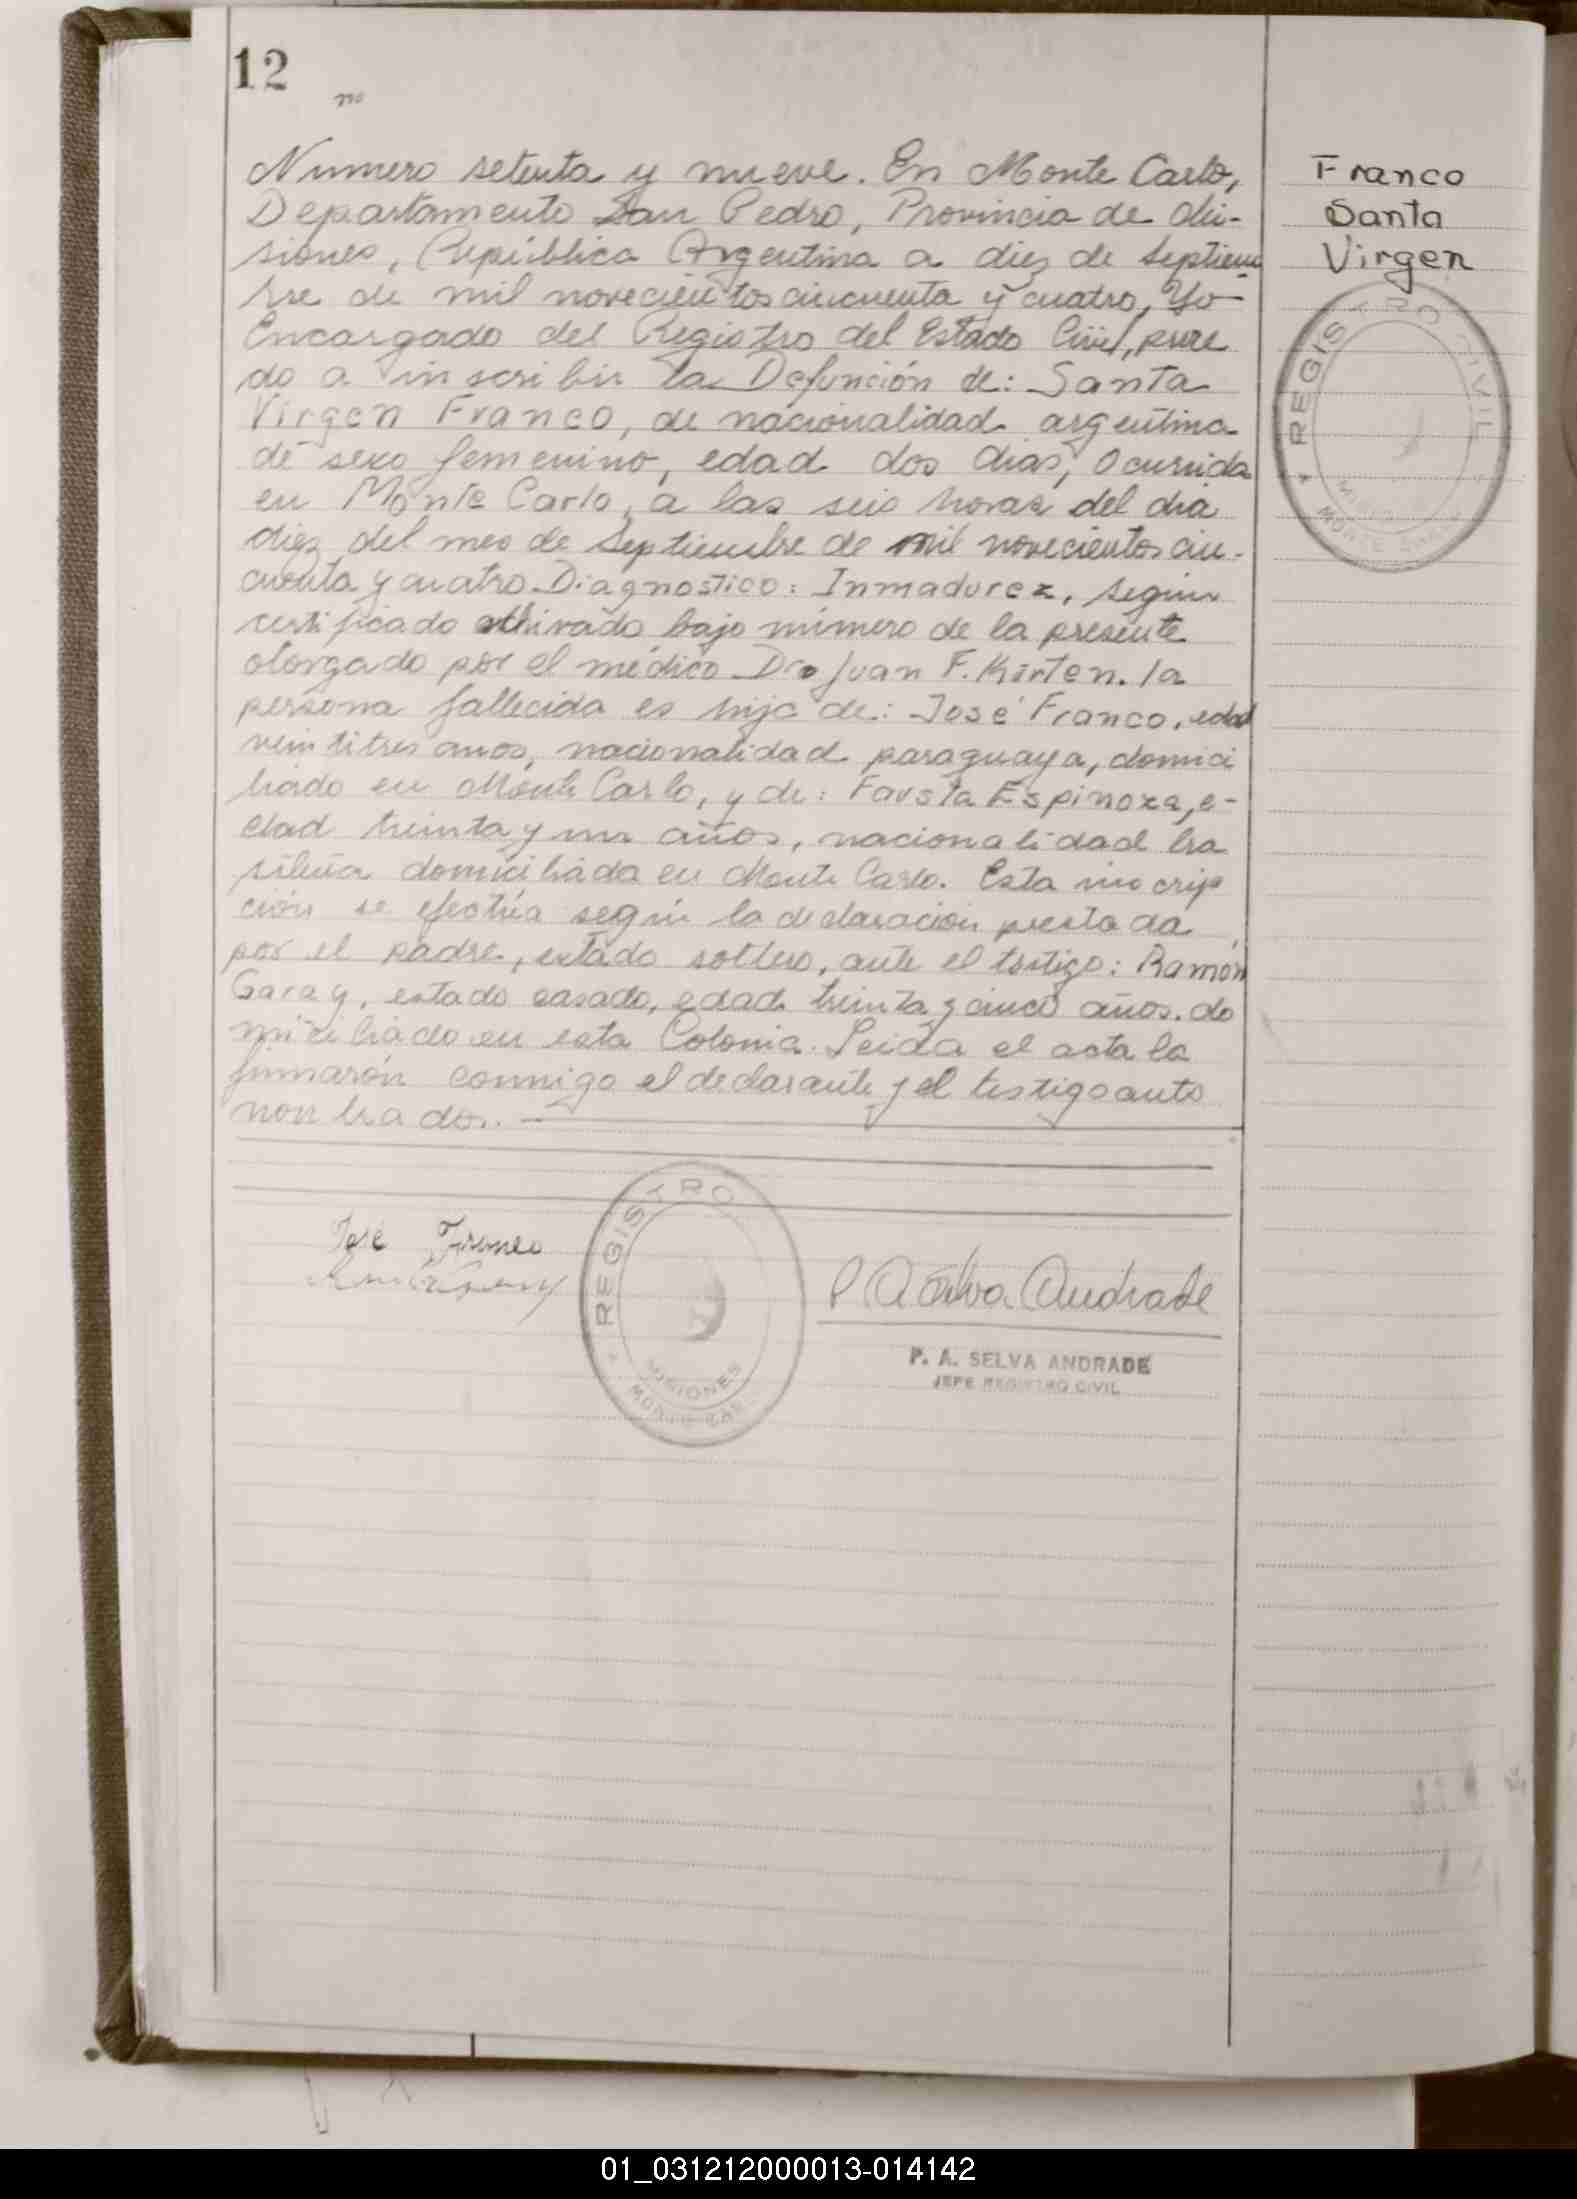 12
no
Numero setenta y nueve. En Monte Carlo,
Departamento San Pedro, Provincia de Mi-
siones, República Argentina a diez de Septiem
bre de mil novecientos cincuenta y cuatro, Yo
Encargado del Registro del Estado Civil, proce
do a inscribir la Defunción de: Santa
Virgen Franco, de nacionalidad argentina
de sexo femenino, edad dos dias, ocurrida
en Monte Carlo, a las seis horas del dia
diez del mes de Septiembre de mil novecientos cin-
cuenta y cuatro. Diagnostico: Inmadurez, según
certificado archivado bajo número de la presente
otorgado por el médico Dr. Juan F. Kürten. la
persona fallecida es hija de: José Franco, edad
veintitres anos, nacionalidad paraguaya, domici
liado en Monte Carlo, y de: Fausta Espinoza, e-
dad treinta y un años, nacionalidad bra
sileña domiciliada en Monte Carlo. Esta inscrip
ción se efectúa según la declaración prestada
por el padre, estado soltero, ante el testigo: Ramón
Garay, estado casado, edad treinta y cinco años. do
miciliado en esta Colonia. Leida el acta la
firmarón conmigo el declarante y el testigo ante
nombrados.
Franco
Santa
Virgen
REGISTRO CIVIL
MISIONES
MONTE CARLO
José Franco
REGISTRO
MISIONES
MONTE CAR
P A Selva Andrade
P. A. SELVA ANDRADE
JEFE REGISTRO CIVIL
01_031212000013-014142